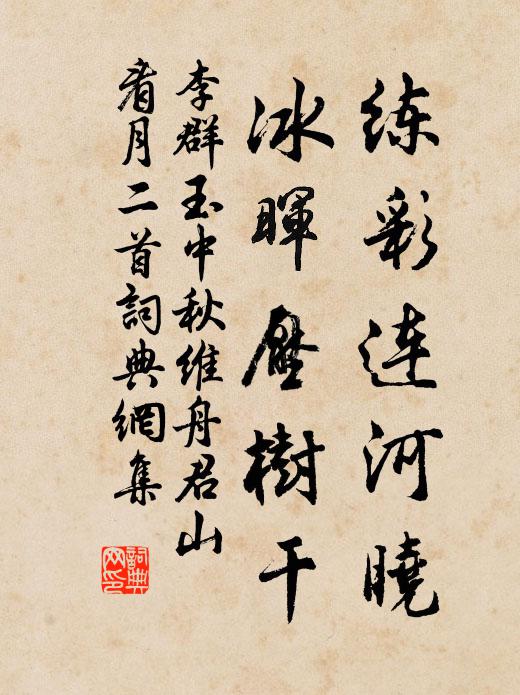 练彩连河晓
冰暉壓樹干
李群玉中秋维舟君山
看月二首詞典網集
詞典网印